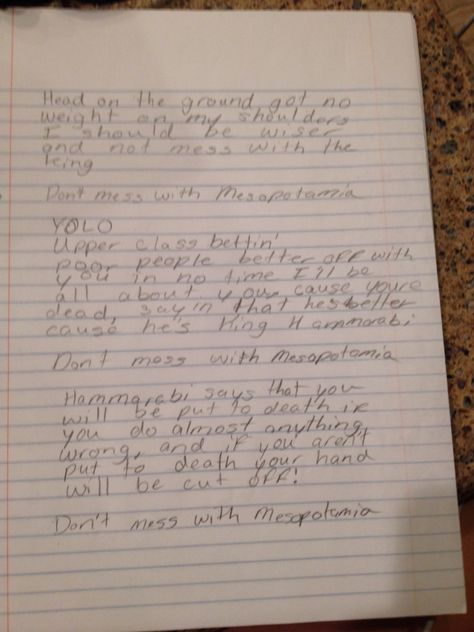 Head on the ground got no
weight on my shoulders
I should be wiser
and not mess with the
king
Don't mess with Mesopotamia
YOLO
Upper class bettin'
poor people better off with
you in no time I'll be
all about you cause youre
dead, sayin that hes better
cause he's King Hammarabi
Don't mess with Mesopotamia
Hammarabi says that you
will be put to death if
you do almost anything
wrong, and if you aren't
put to death your hand
will be cut off!
Don't mess with Mesopotamia